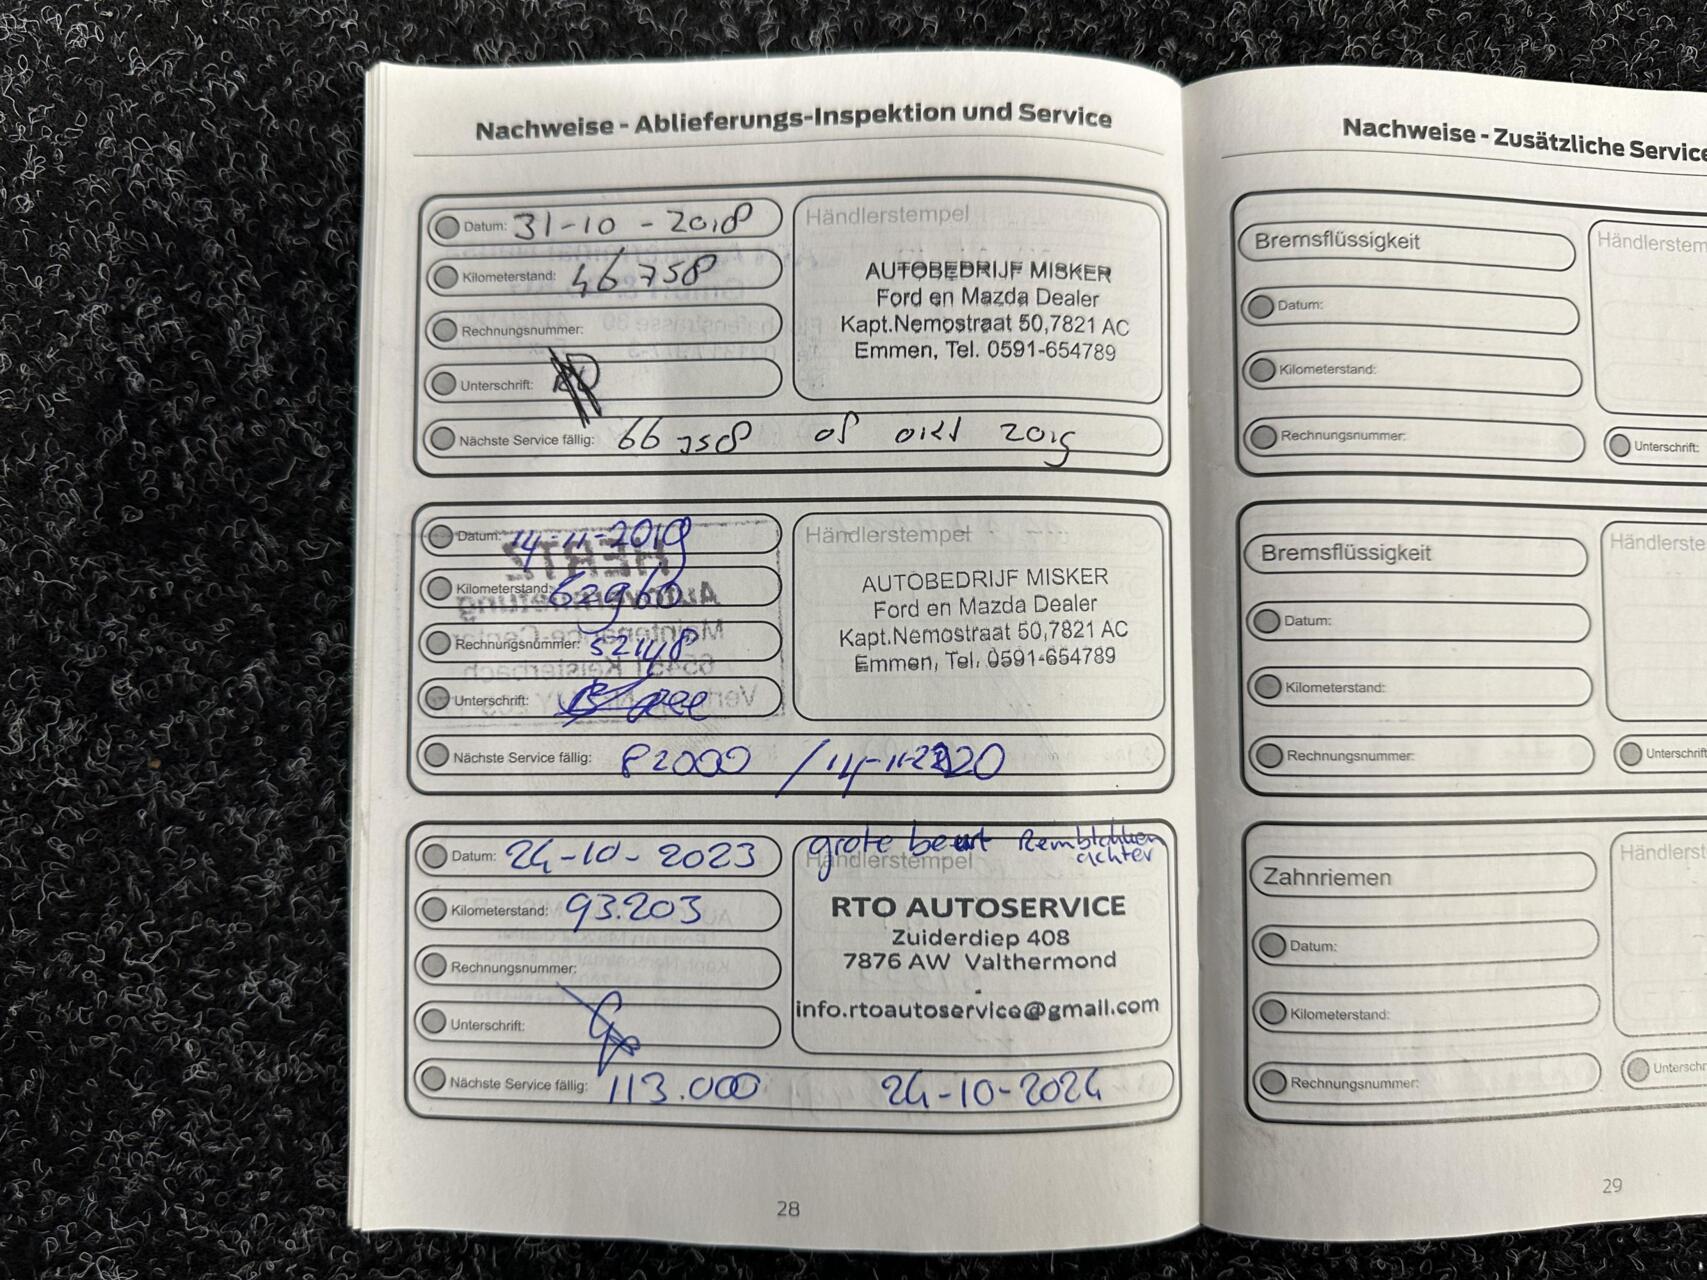 Nachweise - Ablieferungs-Inspektion und Service
Datum: 31-10-2018
Kilometerstand: 46758
Rechnungsnummer:
Unterschrift:
Nächste Service fällig: 66758 of okt 2019
Händlerstempel
AUTOBEDRIJF MISKER
Ford en Mazda Dealer
Kapt.Nemostraat 50,7821 AC
Emmen, Tel. 0591-654789
Datum: 14-11-2019
Kilometerstand: 62960
Rechnungsnummer: 52148
Unterschrift:
Nächste Service fällig: 82000 / 14-11-2020
Händlerstempel
AUTOBEDRIJF MISKER
Ford en Mazda Dealer
Kapt.Nemostraat 50,7821 AC
Emmen, Tel. 0591-654789
Datum: 24-10-2023
Kilometerstand: 93.203
Rechnungsnummer:
Unterschrift:
Nächste Service fällig: 113.000 24-10-2024
grote beurt Remblokken
achter
Händlerstempel
RTO AUTOSERVICE
Zuiderdiep 408
7876 AW Valthermond
info.rtoautoservice@gmail.com
28
Nachweise - Zusätzliche Service
Bremsflüssigkeit
Datum:
Kilometerstand:
Rechnungsnummer:
Händlerstem
Unterschrift:
Bremsflüssigkeit
Datum:
Kilometerstand:
Rechnungsnummer:
Händlerste
Unterschrift
Zahnriemen
Datum:
Kilometerstand:
Rechnungsnummer:
Händlerst
Unterschr
29